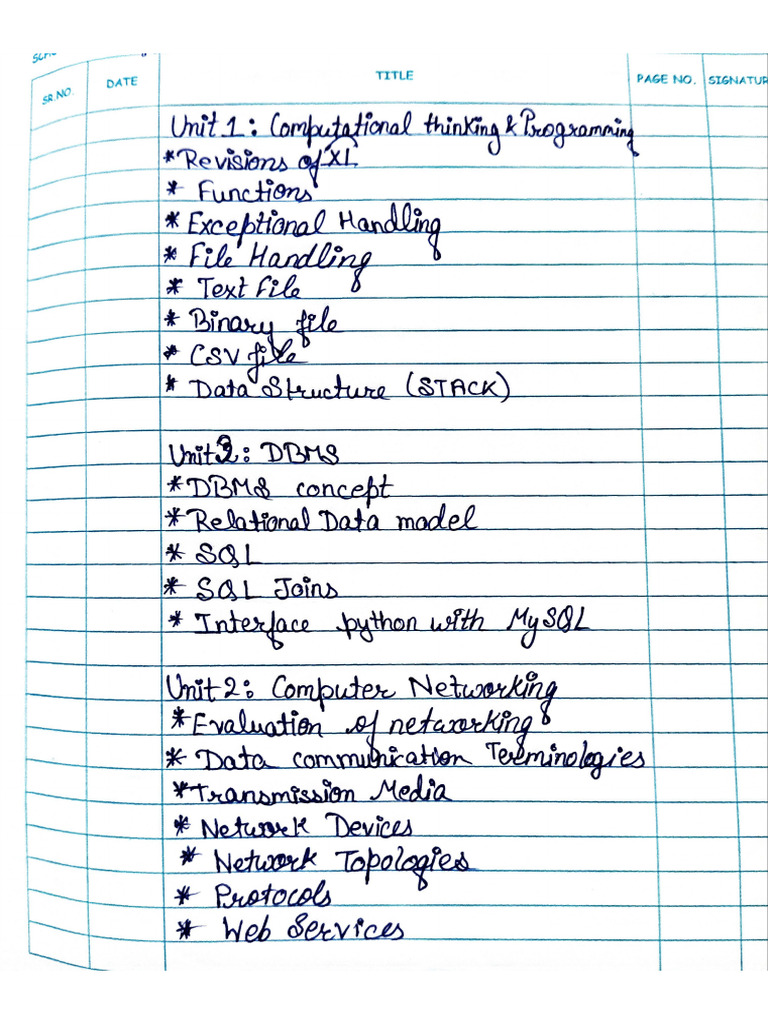 SR.NO. DATE TITLE PAGE NO. SIGNATUR
Unit 1: Computational thinking & Programming
* Revisions of XI
* Functions
* Exceptional Handling
* File Handling
* Text file
* Binary file
* CSV file
* Data Structure (STACK)
Unit 3: DBMS
* DBMS concept
* Relational Data model
* SQL
* SQL Joins
* Interface python with MySQL
Unit 2: Computer Networking
* Evaluation of networking
* Data communication Terminologies
* Transmission Media
* Network Devices
* Network Topologies
* Protocols
* Web Services